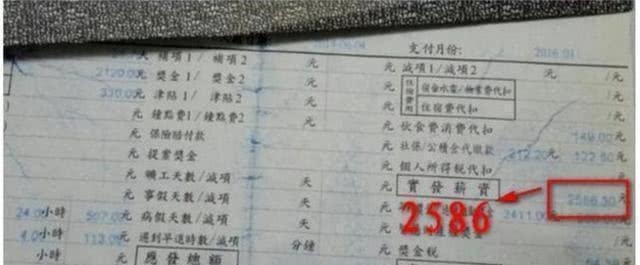 2014-06-04 支付月份: 2016.04
補項1/ 補項2 元 元 減項1/減項2 /元
2120.00元 獎金1/ 獎金2 元 住宿費用 宿舍水電/物業費代扣 /元
330.00元 津貼1/ 津貼2 元 住宿費代扣 /元
元 鐘點費1/鐘點費2 元 伙食費消費代扣 149.00元
元 保險賠付款 元 社保/公積金代繳款 212.20元 122.50元
元 提案獎金 元 個人所得稅代扣 元
元 曠工天數/減項 天 元 實發薪資 2586.30元
元 事假天數/減項 天 2586
24.00小時 507.00元 病假天數/減項 天 2411.00
4.00小時 113.00元 遲到早退時數/減項 分鐘 元 獎金稅
小時 應發總額